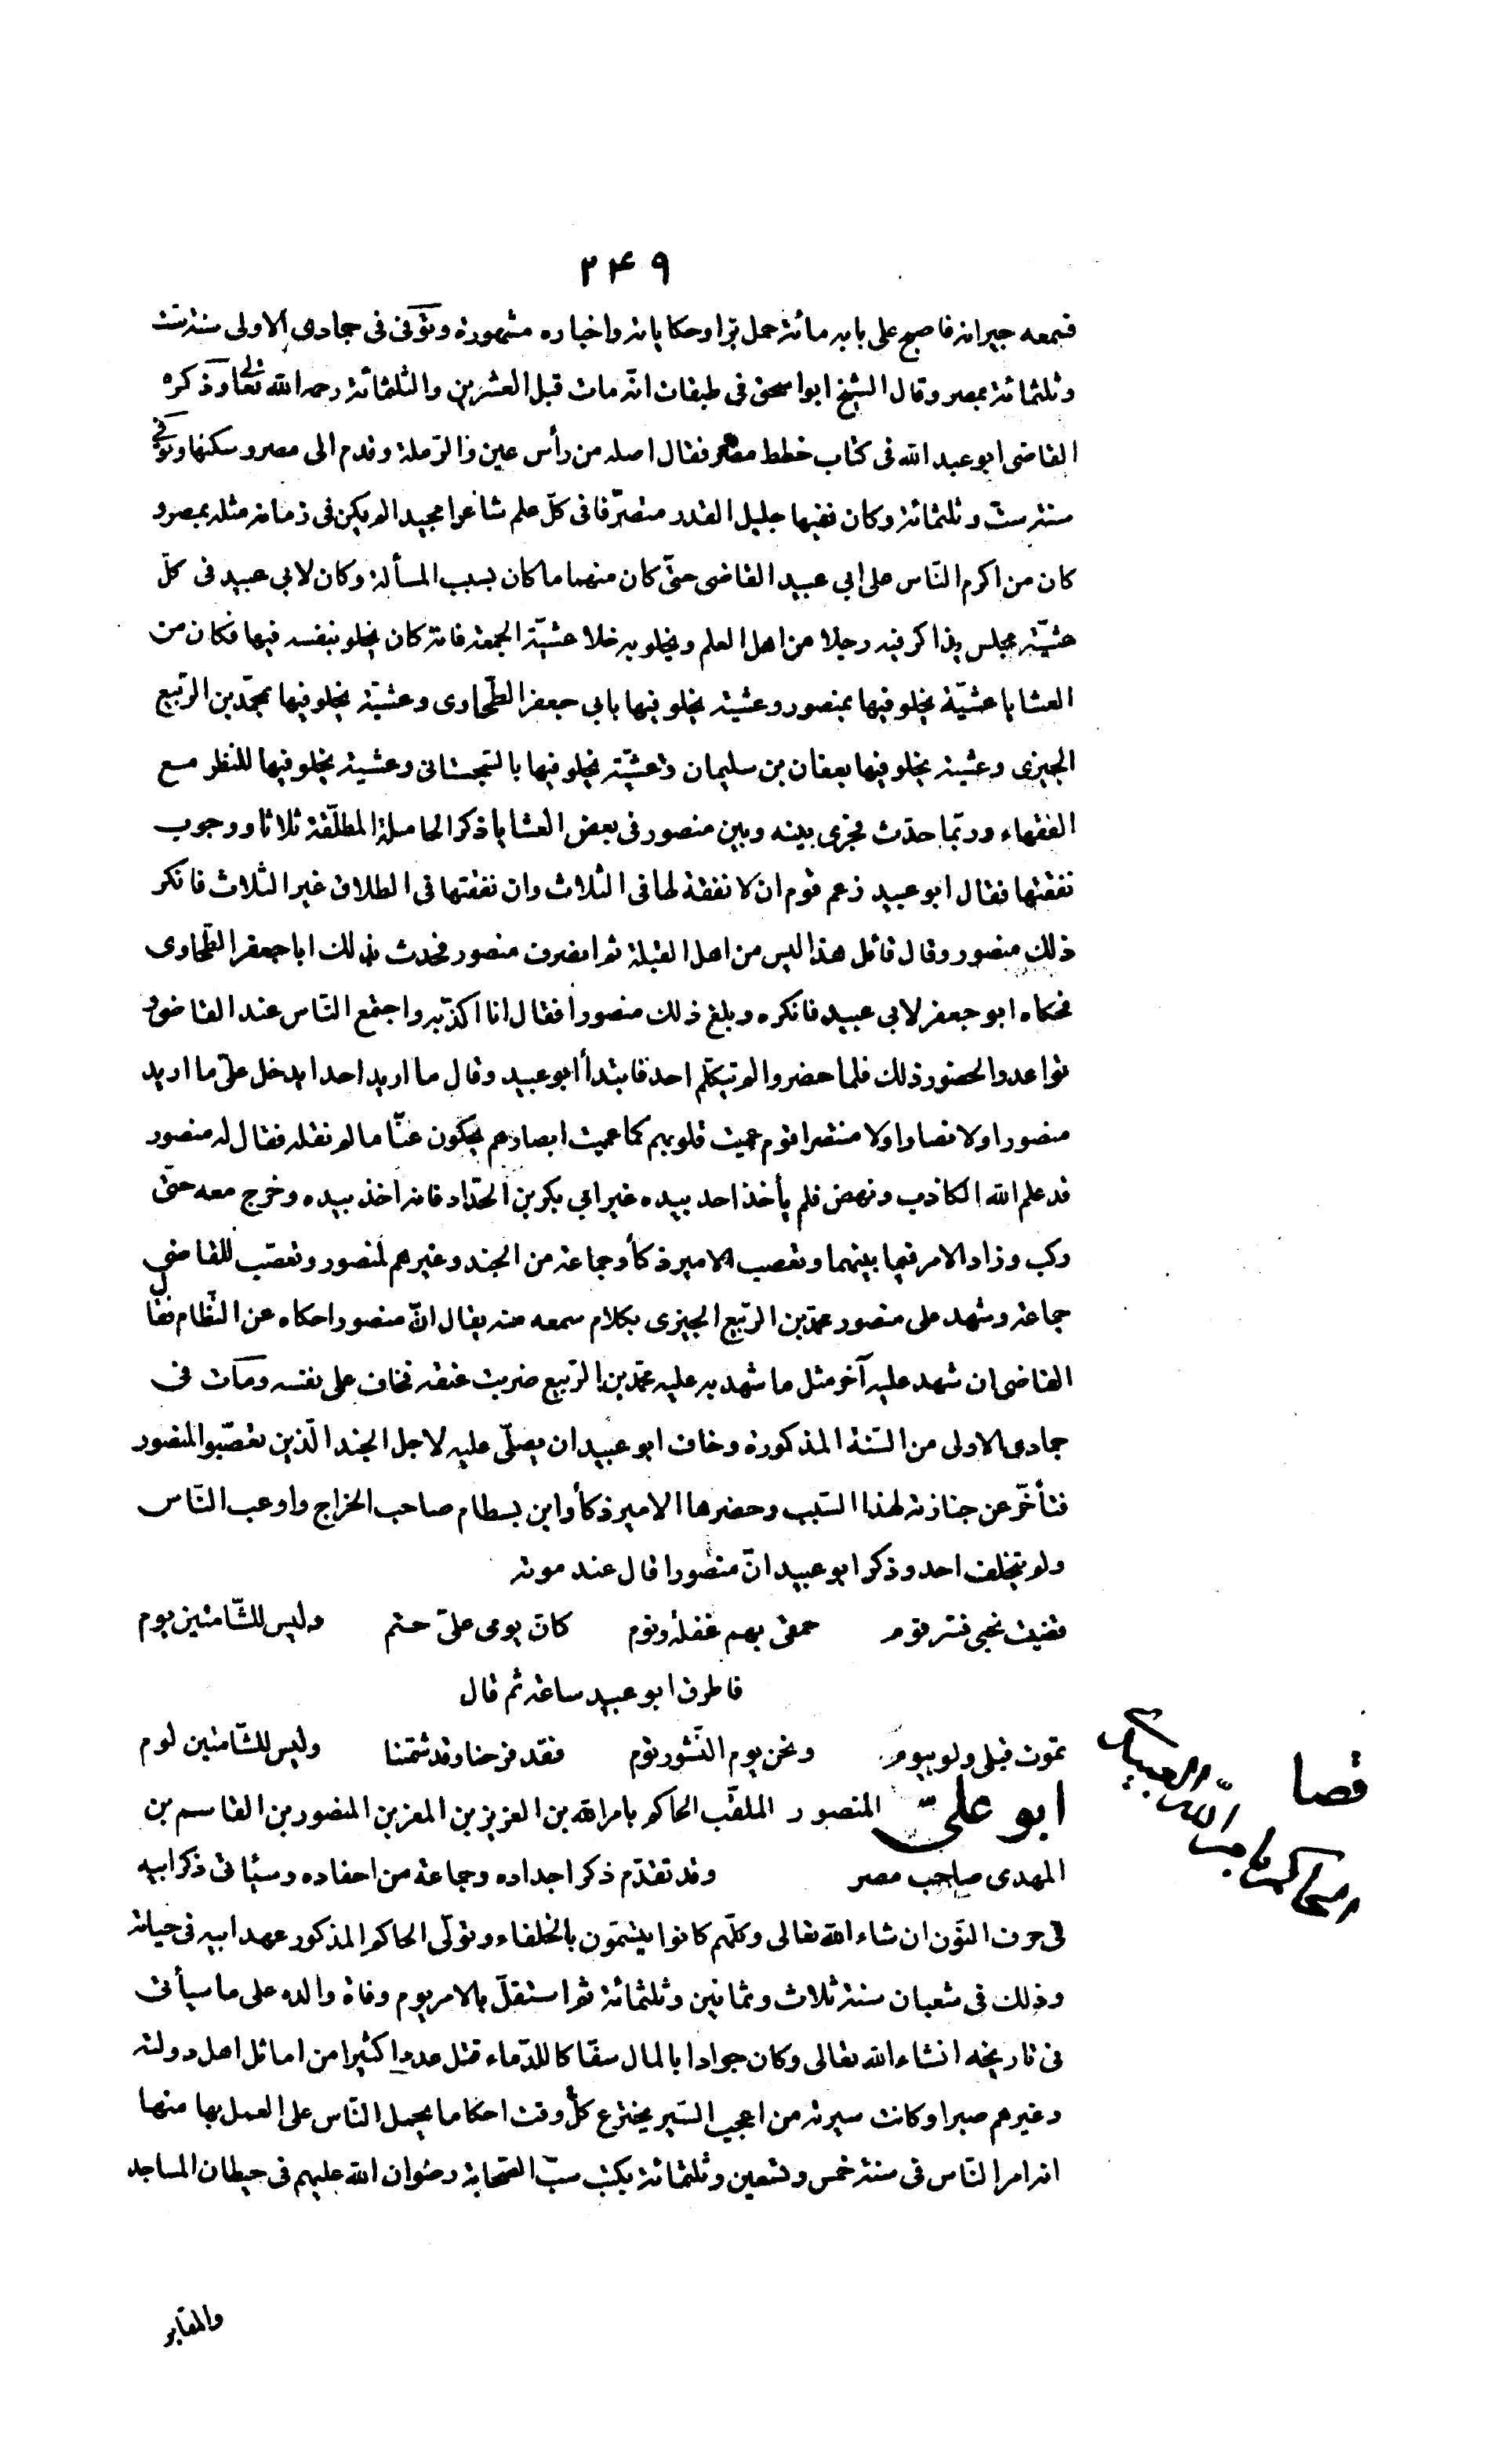 ۲۴۹
فسمعه جيرانه فاصبح على بابه مائة حمل برّا وحكاياته واخباره مشهورة وتوفّى فى جمادى الاولى سنة ستّ
وثلثمائة بمصر وقال الشيخ ابو اسحق فى طبقات انّه مات قبل العشرين والثلثمائة رحمه الله تعالى وذكره
القاضى ابو عبد الله فى كتاب خطط مصر فقال اصله من رأس عين والرّملة وقدم الى مصر وسكنها وتوفّى
سنة ستّ وثلثمائة وكان فقيها جليل القدر متصرّفا فى كلّ علم شاعرا مجيدا لم يكن فى زمانه مثله بمصر و
كان من اكرم النّاس على ابي عبيد القاضى حتّى كان منهما ما كان بسبب المسألة وكان لابي عبيد فى كلّ
عشيّة مجلس يذاكر فيه رجلا من اهل العلم ويخلو به خلا عشيّة الجمعة فانه كان يخلو بنفسه فيها فكان من
العشايا عشيّة يخلو فيها بمنصور وعشية يخلو فيها بابي جعفر الطّحاوى وعشيّة يخلو فيها بمحمّد بن الرّبيع
الجيزى وعشية يخلو فيها بعفان بن سليمان وعشيّة يخلو فيها بالسّجستانى وعشية يخلو فيها للنظر مع
الفقهاء وربّما حدّث فجرى بينه وبين منصور فى بعض العشايا ذكر الحاملة المطلّقة ثلاثا ووجوب
نفقتها فقال ابو عبيد زعم قوم ان لا نفقة لها فى الثلاث وان نفقتها فى الطلاق غير الثلاث فانكر
ذلك منصور وقال قائل هذا ليس من اهل القبلة ثم انصرف منصور فحدث بذلك ابا جعفر الطّحاوى
فحكاه ابو جعفر لابي عبيد فانكره وبلغ ذلك منصورا فقال انا اكذّبه واجتمع النّاس عند القاضى و
تواعدوا لحضور ذلك فلما حضروا لم يتكلّم احد فابتدأ ابو عبيد وقال ما اريد احدا يدخل علىّ ما اريد
منصورا ولا نصارا ولا منتصرا قوم عميت قلوبهم كما عميت ابصارهم يحكون عنّا ما لم نقله فقال له منصور
قد علم الله الكاذب ونهض فلم يأخذ احد بيده غير ابي بكر بن الحدّاد فانه اخذ بيده وخرج معه حتّى
ركب وزاد الامر فيما بينهما وتعصب الامير ذكأ وجماعة من الجند وغيرهم لمنصور وتعصّب للقاضى
جماعة وشهد على منصور محمّد بن الرّبيع الجيزى بكلام سمعه منه يقال انّ منصورا حكاه عن النّظام فقال
القاضى ان شهد عليه آخر مثل ما شهد به عليه محمّد بن الرّبيع ضربت عنقه فخاف على نفسه ومات فى
جمادى الاولى من السّنة المذكورة وخاف ابو عبيد ان يصلّى عليه لاجل الجند الّذين تعصّبوا لمنصور
فتأخّر عن جنازته لهذا السّبب وحضرها الامير ذكأ وابن بسطام صاحب الخراج واوعب النّاس
ولم يتخلف احد وذكر ابو عبيد انّ منصورا قال عند موته
قضيت نحبى فسرّ قوم حمقى بهم غفلة ونوم كانّ يومى علىّ حتم وليس للشّامتين يوم
فاطرق ابو عبيد ساعة ثم قال
تموت قبلى ولو بيوم ونحن يوم النّشور توم فقد فرحنا وقد شمتنا وليس للشّامتين لوم
ابو علىّ المنصور الملقّب الحاكم بامر الله بن العزيز بن المعز بن المنصور بن القاسم بن
المهدى صاحب مصر وقد تقدّم ذكر اجداده وجماعة من احفاده وسيأتى ذكر ابيه
فى حرف النّون ان شاء الله تعالى وكلّهم كانوا يتسمّون بالخلفاء وتولّى الحاكم المذكور عهد ابيه فى حياته
وذلك فى شعبان سنة ثلاث وثمانين وثلثمائة ثم استقلّ بالامر يوم وفاة والده على ما سيأتى
فى تاريخه انشاء الله تعالى وكان جوادا بالمال سفّاكا للدّماء قتل عددا كثيرا من اماثل اهل دولته
وغيرهم صبرا وكانت سيرته من اعجب السّير يخترع كلّ وقت احكاما يحمل النّاس على العمل بها منها
انه امر النّاس فى سنة خمس وتسعين وثلثمائة بكتب سبّ الصّحابة رضوان الله عليهم فى حيطان المساجد
والمقابر
الحاكم بامر الله العبيدى